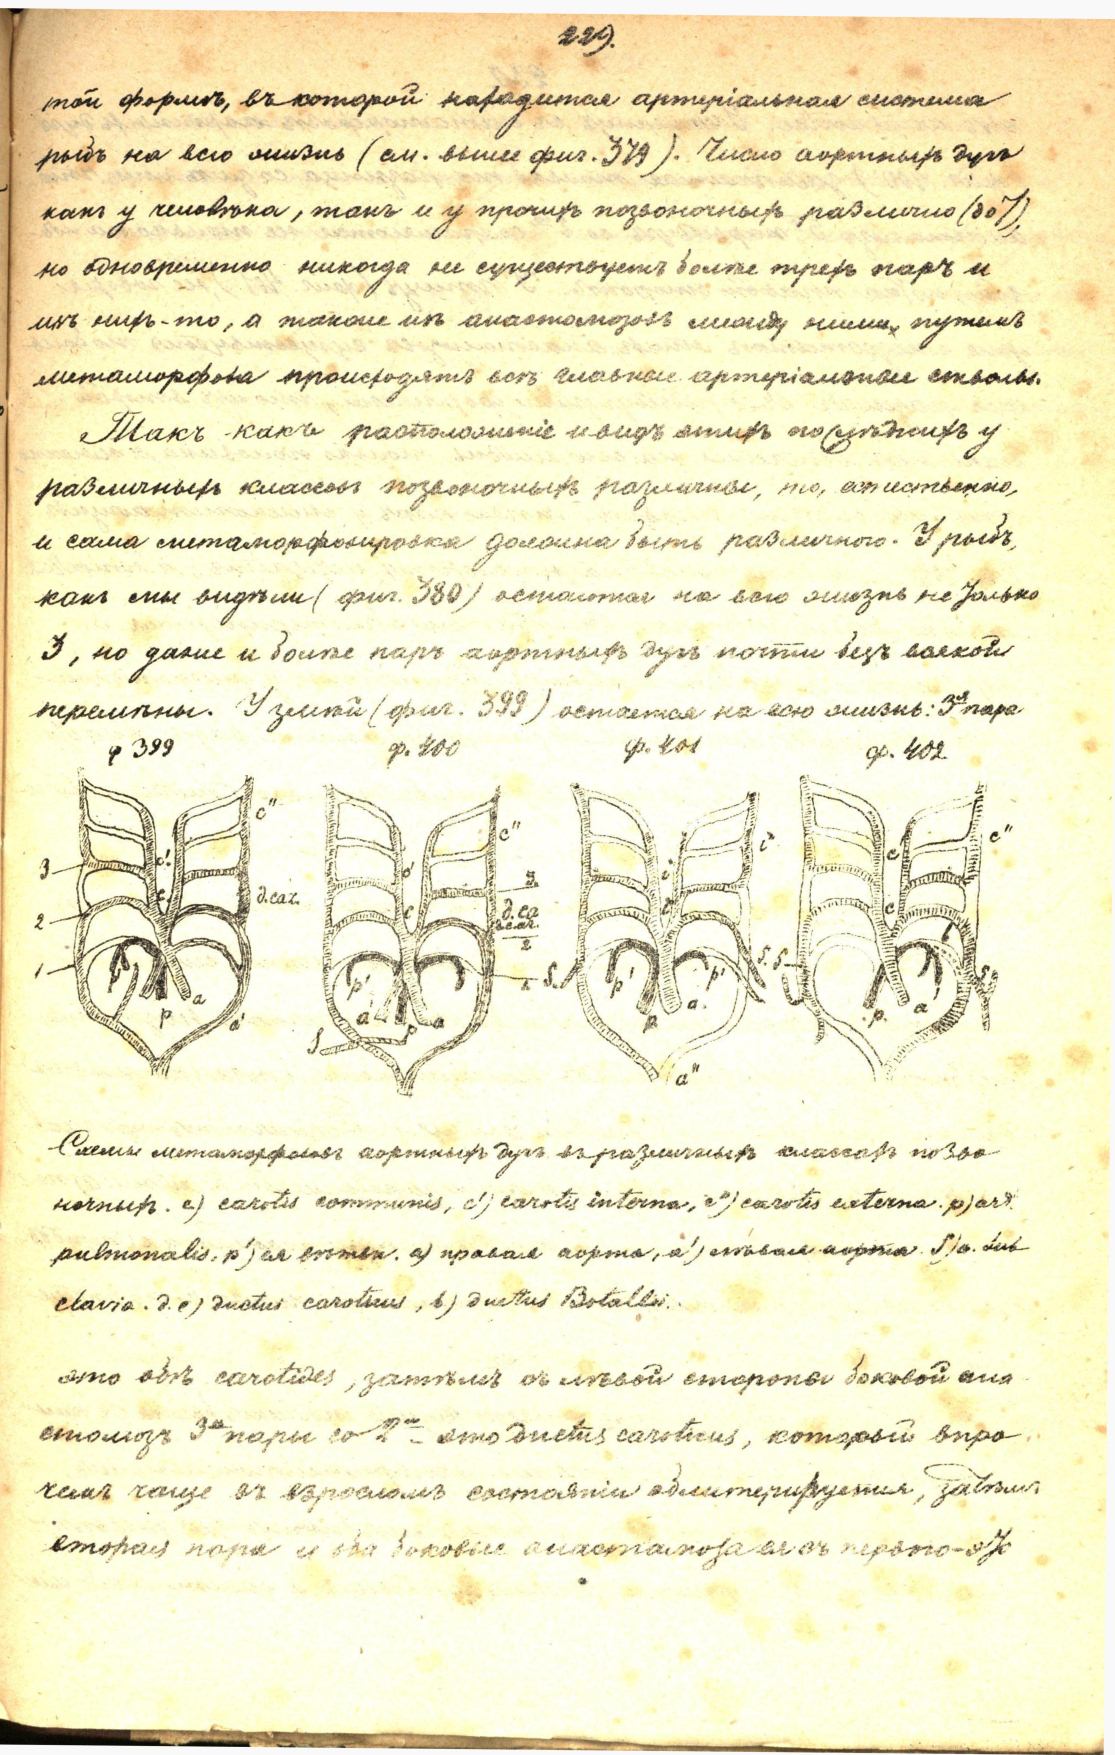 229.
той формѣ, въ которой находится артеріальная система
рыбъ на всю жизнь (см. выше фиг. 379). Число аортныхъ дугъ
какъ у человѣка, такъ и у прочихъ позвоночныхъ различно (до 7),
но одновременно никогда не существуетъ болѣе трехъ паръ и
изъ нихъ-то, а также изъ анастомозовъ между ними, путемъ
метаморфоза происходятъ всѣ главные артеріальные стволы.
Такъ какъ расположеніе и видъ этихъ послѣднихъ у
различныхъ классовъ позвоночныхъ различны, то, естественно,
и сама метаморфозировка должна быть различною. У рыбъ,
какъ мы видѣли (фиг. 380) остаются на всю жизнь не только
3, но даже и болѣе паръ аортныхъ дугъ почти безъ всякой
перемѣны. У змѣй (фиг. 399) остается на всю жизнь: 3я пара
ф 399 ф. 400 ф. 401 ф. 402
3 2 1 c' c c'' d.car. p' p a a'
c' c c'' 3 d.ca 2 p' a p a S
i i' p' p' p a. a'' S. S.
c' c c'' S p. a S
Схемы метаморфозовъ аортныхъ дугъ въ различныхъ классахъ позво
ночныхъ. c) carotis communis, c') carotis interna, c'') carotis externa. p) art.
pulmonalis, p') ея вѣтви. a) правая аорта, a') лѣвая аорта S) a. sub
clavia. d. c) ductus caroticus, b) ductus Botalli.
это обѣ carotides, затѣмъ съ лѣвой стороны боковой ана
стомозъ 3й пары со 2й — это ductus caroticus, который впро
чемъ чаще въ взросломъ состояніи облитерируется, затѣмъ
вторая пара и оба боковые анастамоза ея съ первою-